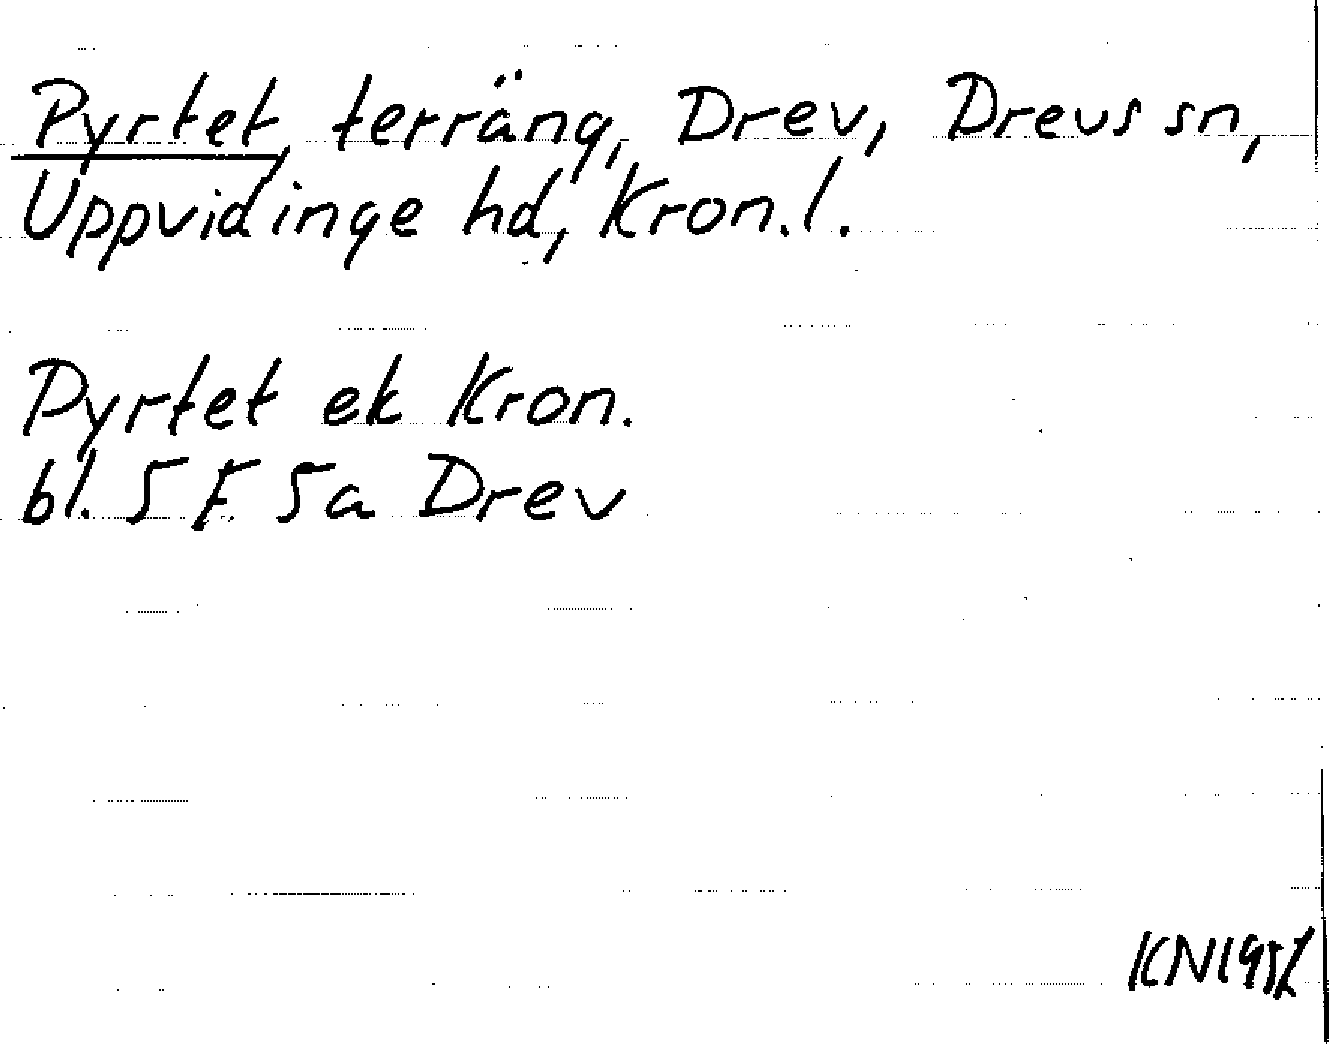 Pyrtet, terräng, Drev, Drevs sn,
Uppvidinge hd, Kron. l.
Pyrtet ek Kron.
bl. 5 F 5a Drev